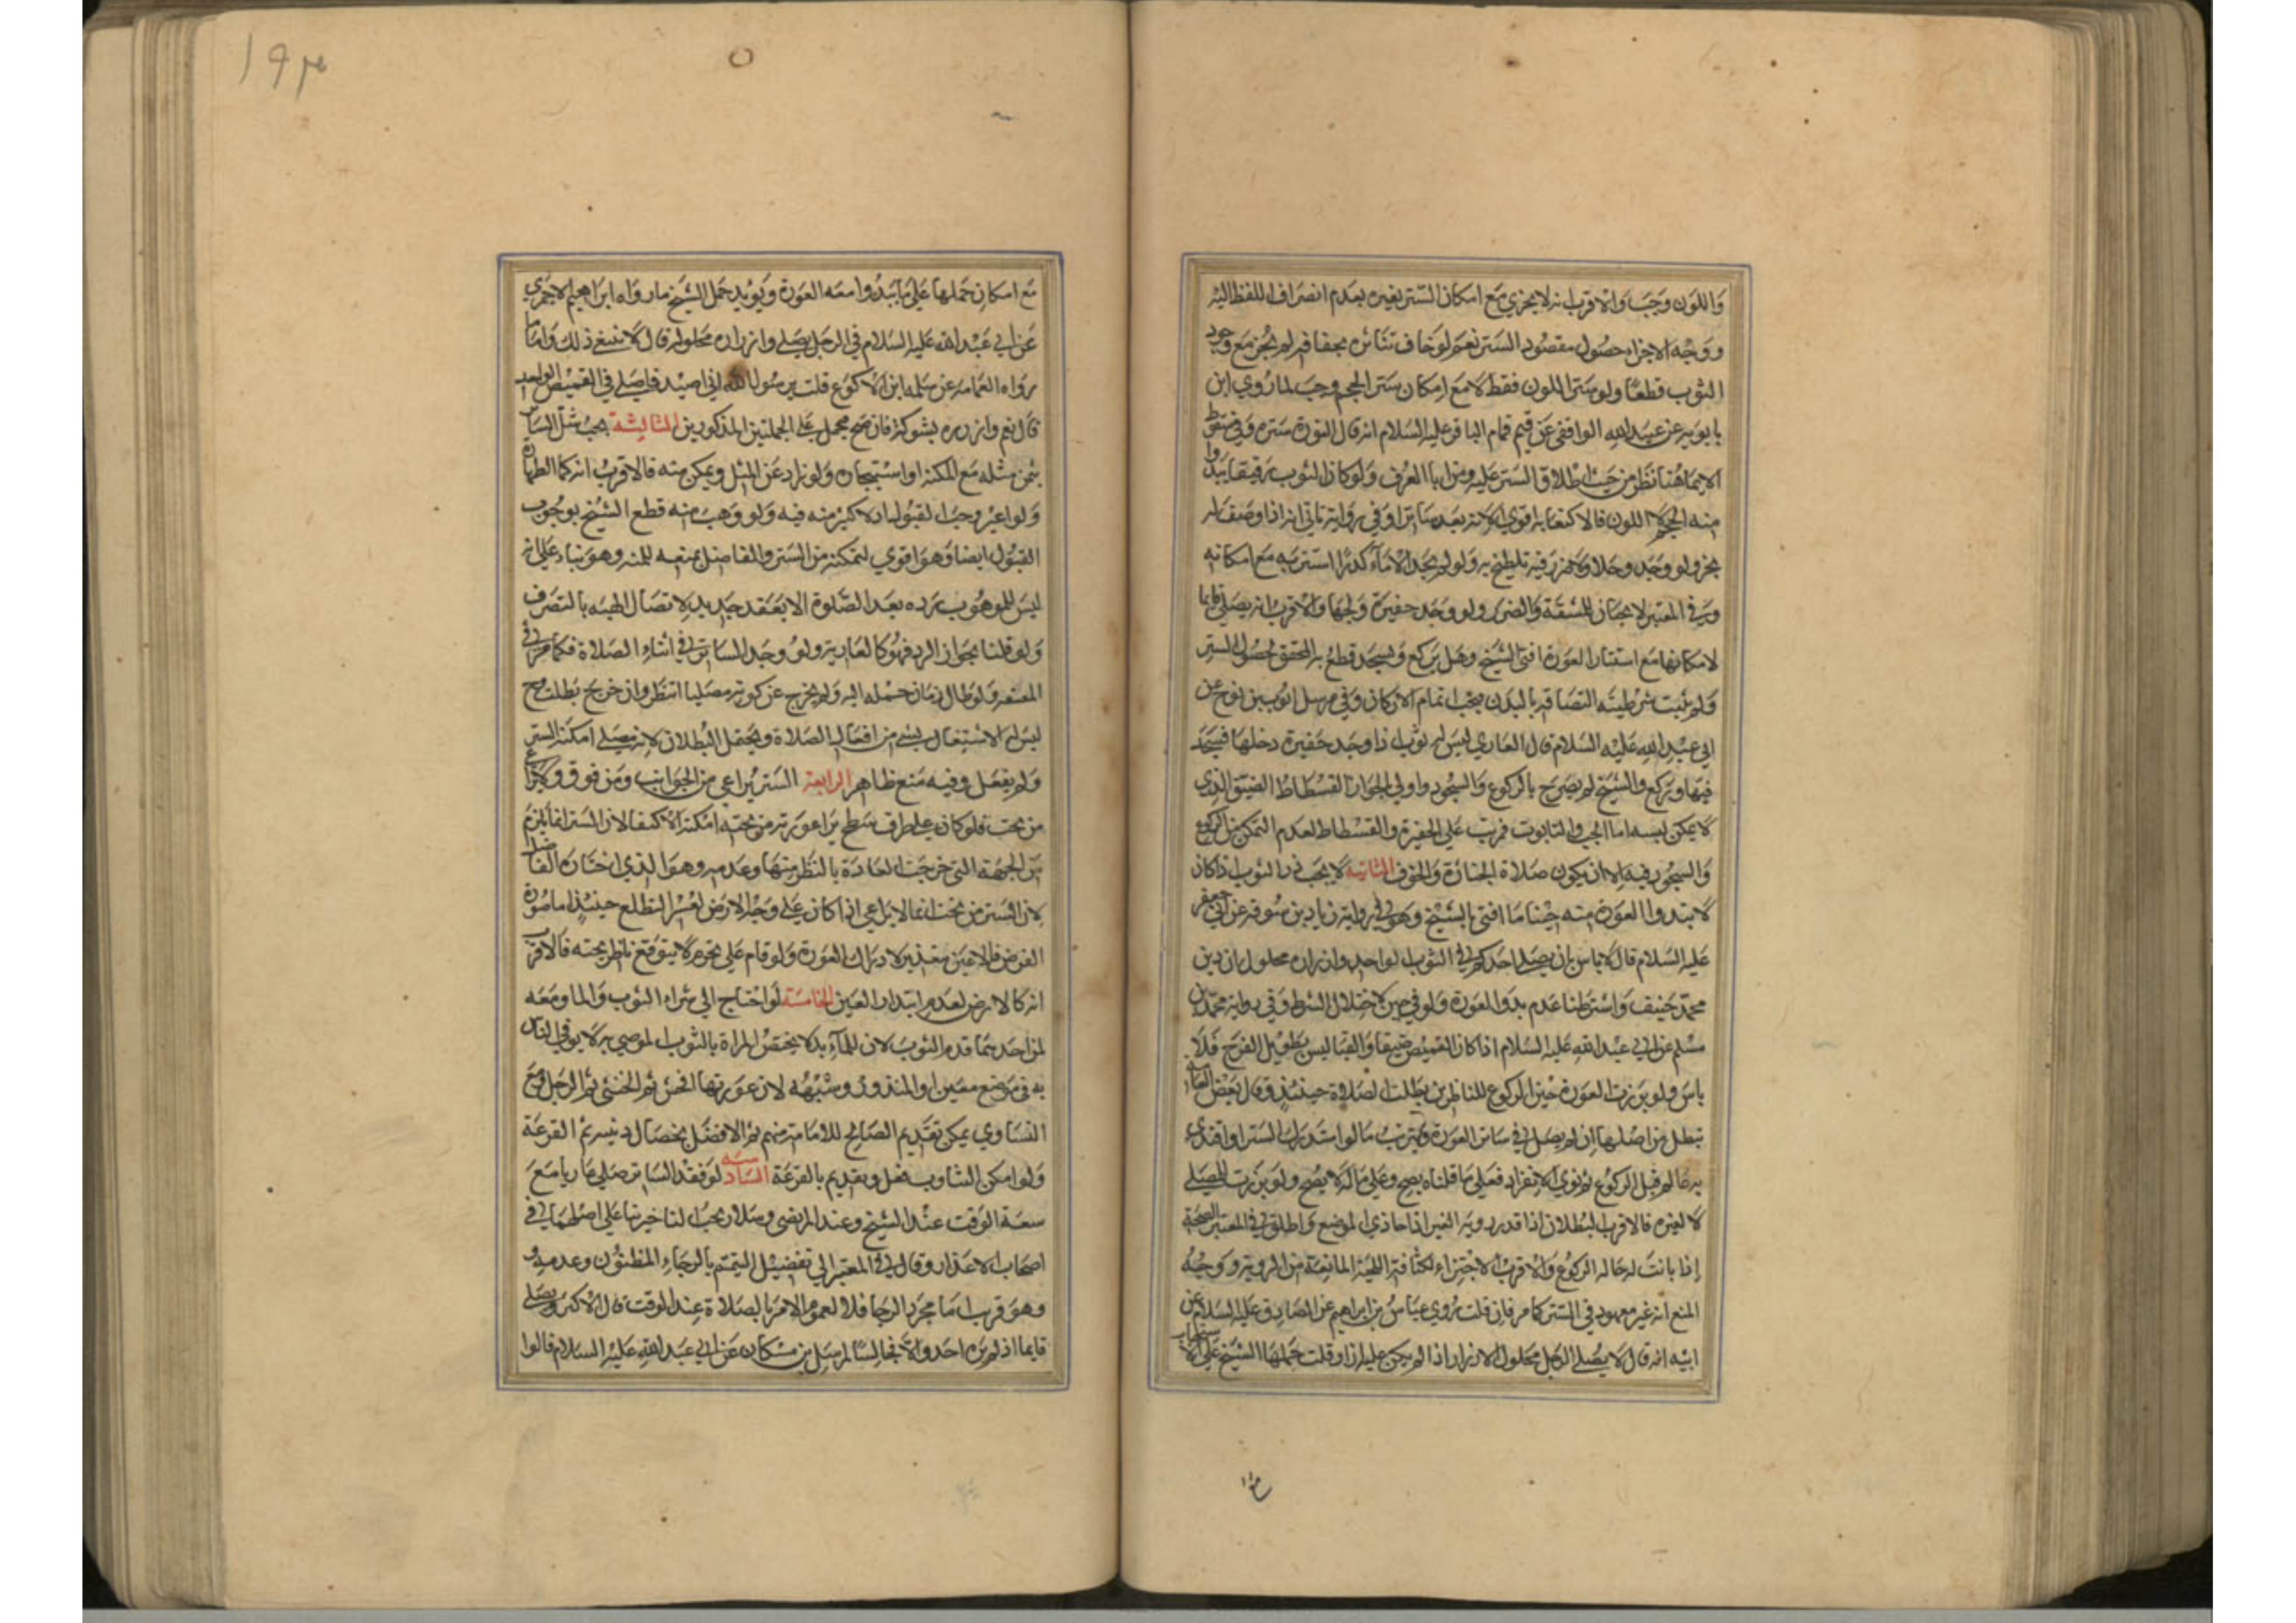 وَاللون وجَبَ وَالاقرب انه لا يجزي مَع امكان الستر بغيره بعدم انصراف اللفظ اليه
ووَجْه الاجزاء حصُول مقصُود الستر نعم لوخاف تناثره بجفافه لم يجز مع وجود
الثوب قطعًا ولو ستر اللون فقط لا مَع امكان ستر الحجم وجب لما روي ابن
بابويه عن عبيد الله الوافقي عَن قيم حمام الباقر عليه السلام انه قال النورة ستره وفي سقوط
الايما هُنا نظر من حيث اطلاق الستر عليه ومن اباا العرف وَلو كان الثوب رقيقا يبدوا
منه الحجم لا اللون فالاكتفا به اقوي لانه يعد ساترا وفي رواية تاتي انه اذا وصف لم
يجز ولو وجَد وحلا ولا ضرر فيه تلطخ به وَلو لم يجد الا مَاء كدرًا استتر به مَع امكانه
وفي المعتبر لا يجبان للمشقة وَالضرر ولو وجَد حفيرة وَلجها والاقرب انه يصَلي قايما
لامكانها مَع استتار العورة افتى الشيخ وهَل يركع وَيسجد قطع به المحقق لحصُول الستر
وَلم يثبت شرطيته التصاقه بالبدن يجب اتمام الاركان وَفي مرسل ايوب بن نوح عن
ابي عبد الله عَليه السلام قال العاري ليسَ له ثوب اذا وجَد حَفيرة دخلها فيسجد
فيها ويركع والشيخ لم يصَرح بالركوع وَالسجود واولي الجواز الفسطاط الضيق الذي
لا يمكن لبسه اما الجب والتابوت فمرتب علي الحفيرة والفسطاط لعدم التمكن من الركوع
وَالسجود فيه الا ان يكون صَلاة الجنازة وَالخوف الثانيه لا يجب زر الثوب اذا كان
لا تبدوا العورة منه حينا ما افتى به الشيخ وهَو في رواية زياد بن سوقه عن ابي جعفر
عَليه السلام قال لا باس بان يصَلي احدكم في الثوب الواحد وازراره محلول ان دين
محمّد حنيف وَاشترطنا عدم بدو العورة وَلو في حين لاختلال الشرط وَفي رواية محمّد بن
مسلم عن ابي عبد الله عَليه السلام اذا كان القميص ضيقا وَالقبا ليس بطويل الفرج فلا
باسَ ولو برزت العورة حين الركوع للناظرين بطلت الصَلاة حينئذ وقال بعض العامه
تبطل من اصْلها ان لم يصل في ساتر العورة ويترتب مَا لو استدرك الستر او اقتدي
به عَالم قبل الركوع او نوي الانفراد فعلي ما قلناه يصح وعَلي مَا قاله لا يصح ولو برزت للمصلي
لا لغيره فالاقرب البطلان اذا قدر روية الغير اذا حاذي الموضع وَاطلق في المعتبر الصحة
إذا بانت له حَالة الركوع وَالاقرب الاجتزاء لكثافة اللحية المانعة من الروية ووجْه
المنع انه غير معهود في الستر كما مر فان قلت رُوي عَياث بن ابراهيم عن الصادق عَليه السلام عن
ابيْه انه قال لا يصَلي الرجل محلول الازرار اذا لم يكن عليه ازار قلت حَملها الشيخ عَلي الاستحباب
مَع امكان حَملها عَلي مَا يبدُوا معَه العورة وَيويد حمل الشيخ ما رواه ابراهيم الاحمري
عن ابي عَبْد الله عَليه السلام في الرجل يصَلي وازراره محلولة قال لا ينبغي ذلك وَاما ما
رواه العامه عن سلمه ابن الاكوَع قلت يرسُول الله اني اصيْد فاصَلي في القميص الواحد
قال نعم وازرره بشوكة فان صح محمل علي الحملين المذكورين الثالثة يجب شرا الساتر
بثمن مثله مَع المكنة او استيجاره وَلو زاد عَن المثل ويمكن منه فالاقرب انه كما الطهارة
وَلو اعير وجب القبول اذ لا كبير منه فيه وَلو وَهب منه قطع الشيخ بوجوب
القبُول ايضا وَهوَ اقوي لتمكنه من الستر والفاضل يمنعه للمنه وهو بناء علي انه
ليس للموهوب رده بعد الصّلوة الا بعَقد جديد لاتصَال الهبه بالتصَرف
وَلو قلنا بجواز الرد فهُو كالعارية ولو وجَد الساتر في اثناء الصَلاة فكما مر في
المعتقه وَلو طال زمان حمله اليه وَلم يخرج عن كونه مصَليا انتظر وان خرج بطلت ويح
ليس له الاشتغال بشي من افعَال الصَلاة ويحتمل البطلان لانه مصَلي امكنه الستر
وَلم يفعل وفيه مَنع ظاهر الرابعة الستر يراعي من الجوانب ومَن فوق ولا يراعي
من تحت فلو كان علي طرف سَطح يرا عورته من تحته امكنه الاكتفا لان الستر انما يلزم
من الجهة التي جرت العادة بالنظر منها وعَدمه وهوَ الذي اختاره الفاضل
لان الستر من تحت انما لا يراعي اذا كان علي وَجه الارض لعسر التطلع حينئذ اما صُورة
الفرض فالاعين تبتدر لادراك العورة وَلو قام علي مخرم لا يتوقع ناظر تحته فالاقرب
انه كالارض لعدم ابتدار العين الخامسَة لَو احتاج الي شراء الثوب والما ومَعه
ثمن احدهما قدم الثوبَ لان للماء بدلا يختصُ المراة بالثوب الموصي به لاولي الناس
به في مَوضع معين او المنذور وشبهه لان عورتها افحش ثم الخنثي ثم الرجل ومَع
التسَاوي يمكن تقديم الصَالح للامامة منهم ثم الافضل بخصال دينيه ثم القرعَة
وَلو امكن التناوب فعل وتقديم بالقرعَة السادسه لَو فقد الساتر صَلي عاريا مَعَ
سعة الوقت عند الشيخ وعند المرتضي وسلار يجب التاخير بنا علي اصلهما في
اصَحاب الاعذار وقال في المعتبر الي تفضيل التيمم بالرجاء المظنُون وعدمه
وهوَ قريب اما مجرد الرجا فلا لعموم الامر بالصَلاة عند الوقت قال الاكثر ويصَلي
قايما اذ لم يره احد والا فجالسًا لمرسَل بن مسكان عَن ابي عَبد الله عَليْه السَلام قالوا
١٩٣